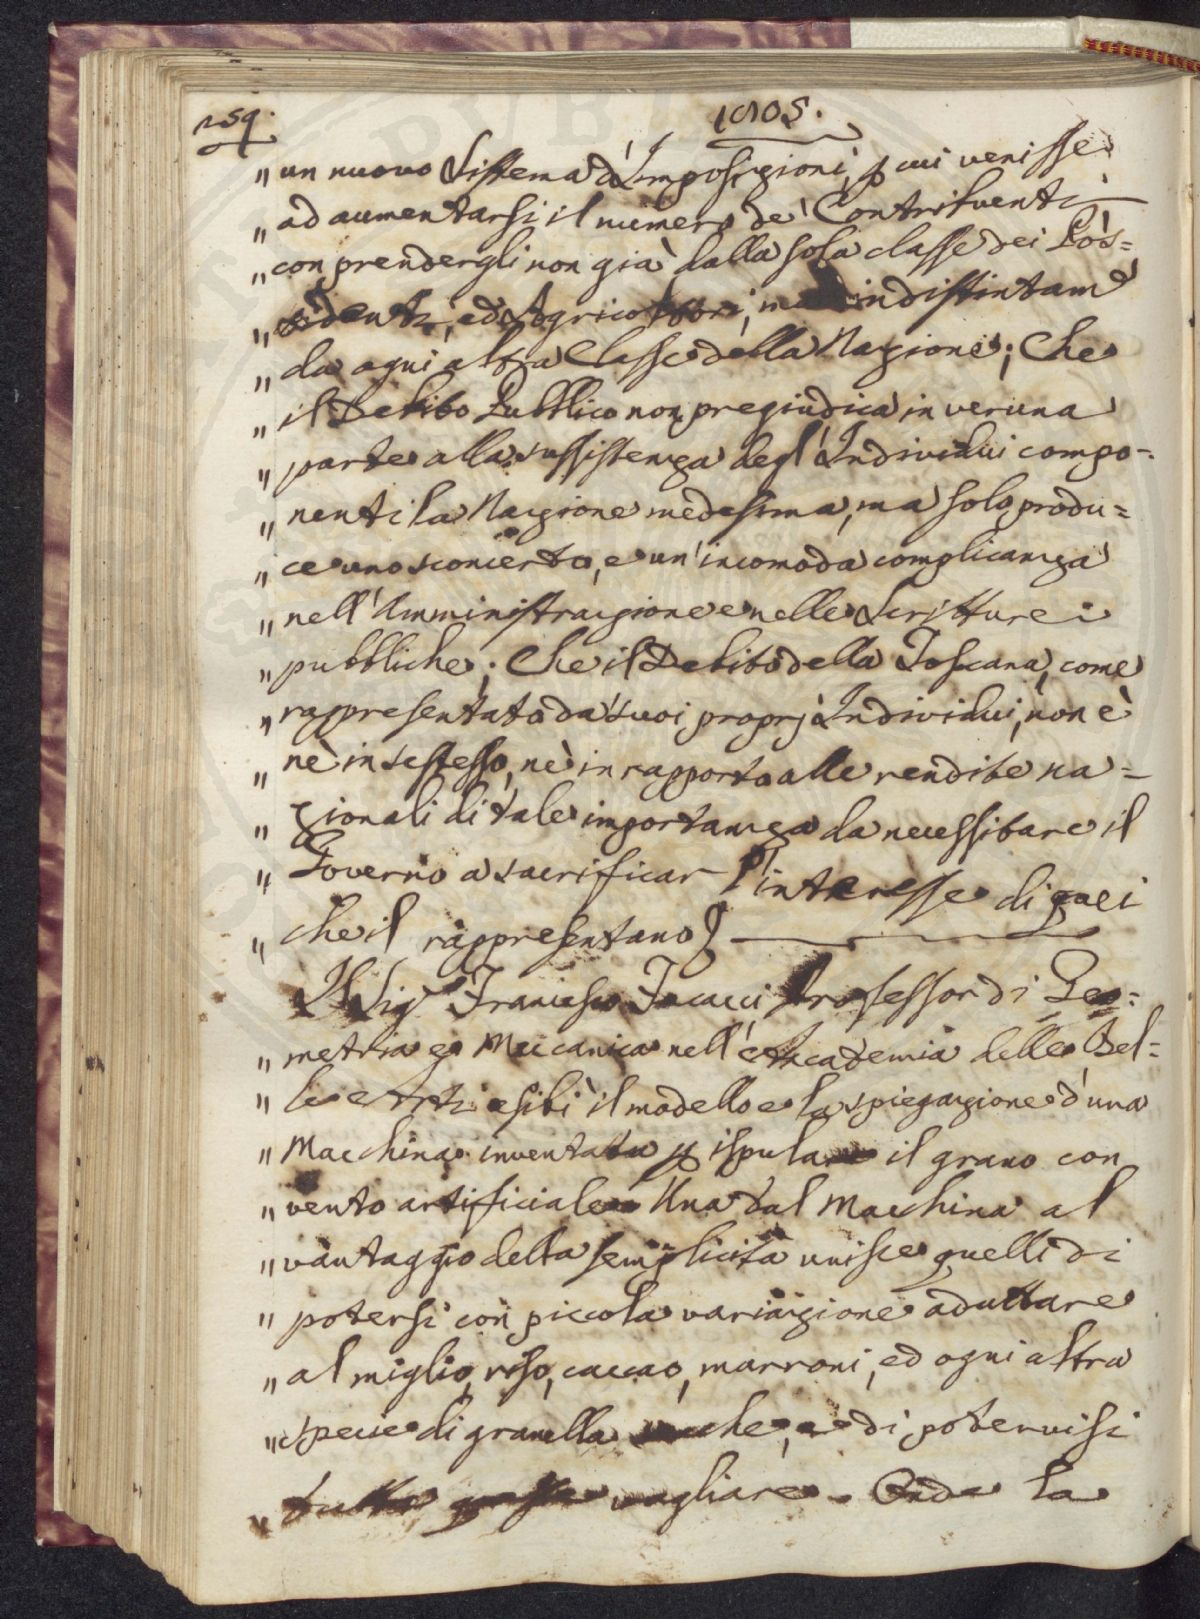 259.
1805.
" un nuovo Sistema d'Imposizioni, p cui venisse
" ad aumentarsi il numero de' Contribuenti
" con prendergli non già dalla sola classe dei Pos=
" sidenti, ed Agricoltori, ma indistintam
" da ogni altra Classe della Nazione; Che
" il Debito Pubblico non pregiudica in veruna
" parte alla sussistenza degl'Individui compo=
" nenti la Nazione medesima, ma solo produ=
" ce uno sconcerto, e un'incomoda complicanza
" nell'Amministrazione e nelle Scritture
" pubbliche; Che il Debito della Toscana, come
" rappresentato da' suoi proprj Individui, non è
" nè in se stesso, nè in rapporto alle rendite na=
" zionali di tale importanza da necessitare il
" Governo a sacrificar l'interesse di quei
" che il rappresentano
Il Sig Francesco Focacci Professor di Geo=
" metria e Meccanica nell'Accademia delle Bel=
" le Arti esibì il modello e la spiegazione d'una
" Macchina inventata p ispulare il grano con
" vento artificiale Una tal Macchina al
" vantaggio della semplicità unisce quelli di
" potersi con piccola variazione adattare
" al miglio, riso, caccao, marroni, ed ogni altra
" specie di granella che, e di potervisi
" vagliare. Onde la